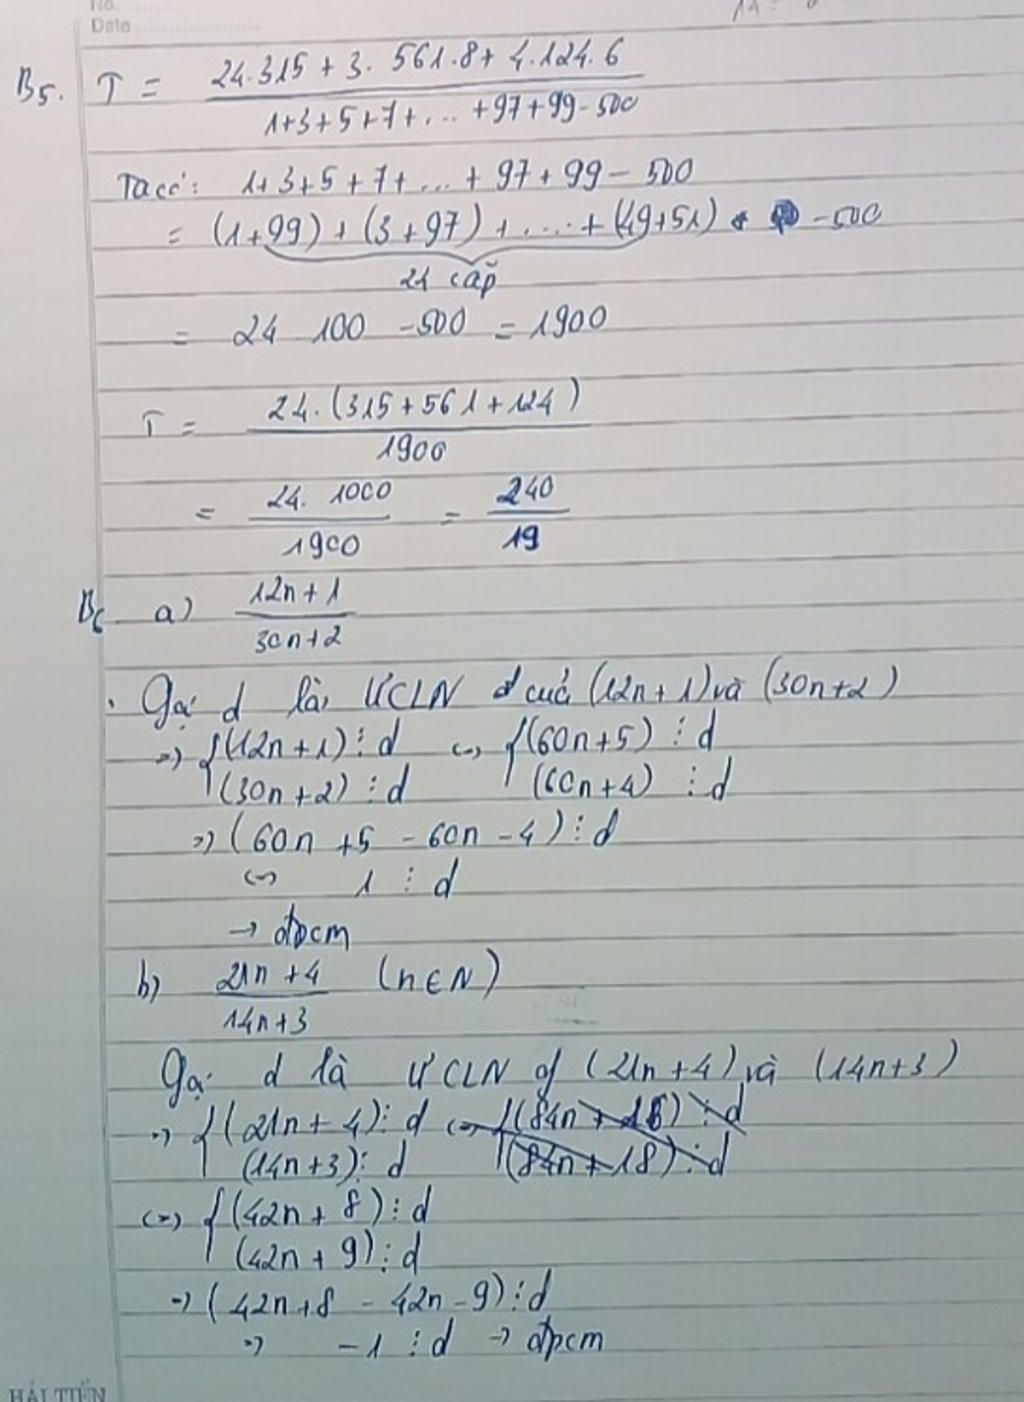 No.
Date
B5. T = (24.315 + 3. 561.8 + 4.124.6) / (1+3+5+7+... +97+99-500)
Ta có: 1+3+5+7+... + 97 + 99 - 500
= (1+99) + (3+97) + ... + (49+51) - 500
24 cặp
= 24 100 - 500 = 1900
T = 24.(315+561+124) / 1900
= 24. 1000 / 1900 = 240 / 19
B6 a) (12n+1) / (30n+2)
Gọi d là ƯCLN của (12n+1) và (30n+2)
=> { (12n+1) ⋮ d <=> { (60n+5) ⋮ d
(30n+2) ⋮ d (60n+4) ⋮ d
=> (60n +5 - 60n - 4) ⋮ d
<=> 1 ⋮ d
→ đpcm
b) (21n+4) / (14n+3) (n∈N)
Gọi d là ƯCLN of (21n+4) và (14n+3)
=> { (21n+4) ⋮ d <=> { (84n + 16) ⋮ d
(14n+3) ⋮ d (84n + 18) ⋮ d
<=> { (42n+8) ⋮ d
(42n+9) ⋮ d
=> (42n+8 - 42n-9) ⋮ d
=> -1 ⋮ d → đpcm
HẢI TIẾN